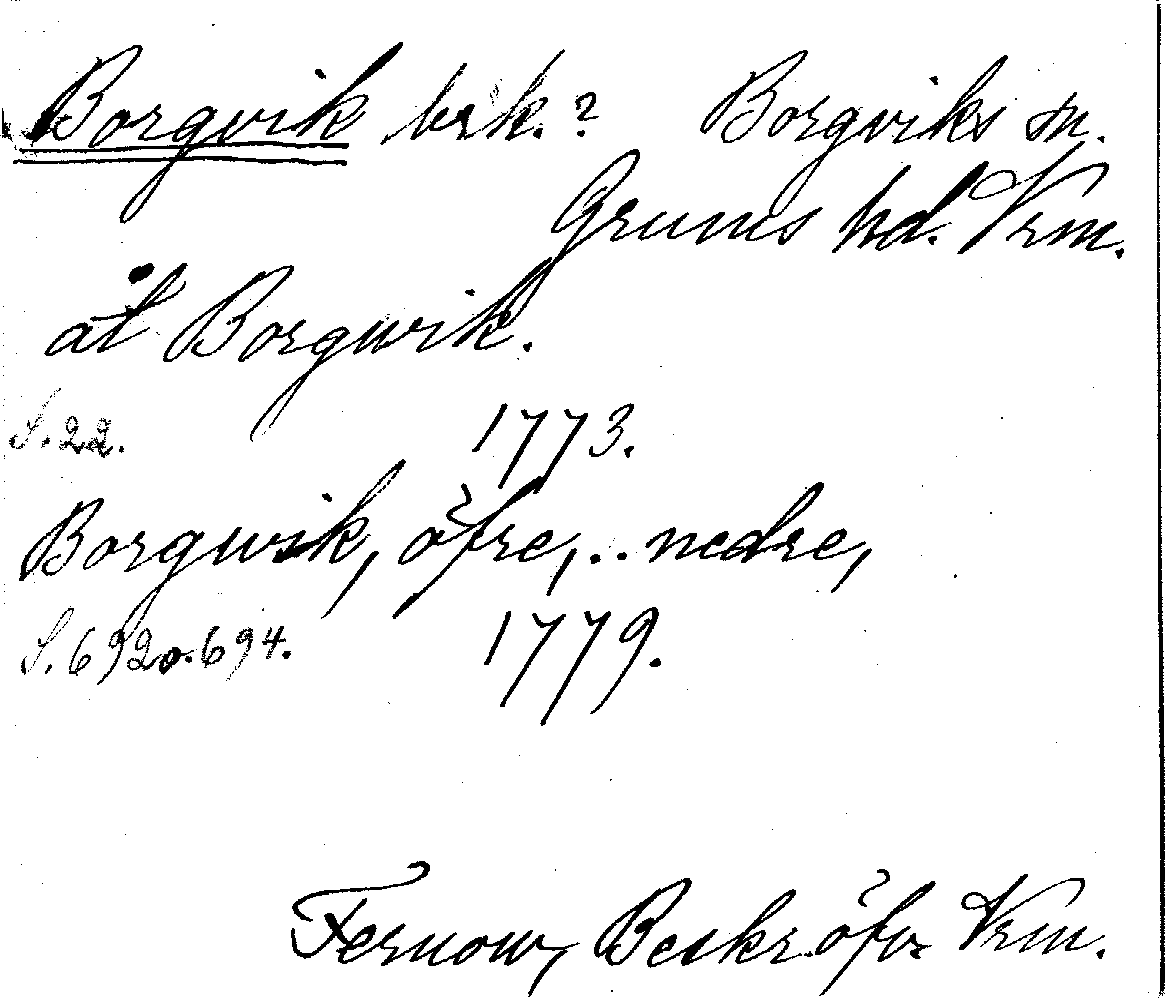 Borgvik brk.? Borgviks sn.
Grums hd. Vrm.
åt Borgwik.
S. 22. 1773.
Borgwik, öfre, .. nedre,
S. 692 o. 694. 1779.
Fernow, Beskr. öfv. Vrm.